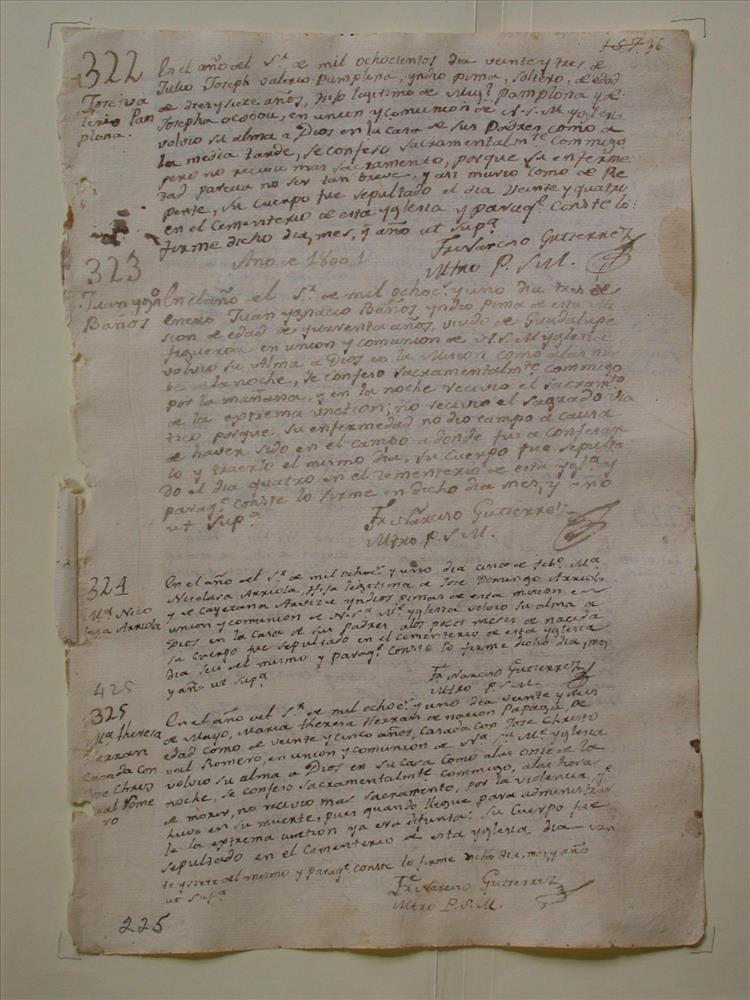 157. 36
322
Joseva
lerio Pam
plona.
En el año del Sr. de mil ochocientos dia veinte y tres de
Julio Joseph Valerio Pamplona, yndio pima, soltero, de edad
de diez y siete años, Hijo legitimo de Migl. Pamplona y de
Josepha ocoboa, en union y comunion de N. S. M. yglesia
volvio su alma a Dios en la casa de sus Padres como a
la media tarde, se confeso sacramentalmte. commigo
pero no recivio mas sacramento, porque su enferme
dad parecia no ser tan breve, y asi murio como de Re
pente, su cuerpo fue sepultado el dia veinte y quatro
en el cementerio de esta yglesia y paraqe. conste lo
firme dicho dia, mes, y año ut supa.
Fr. Narciso Gutierrez
Mtro P. S. M.
Año de 18001
323
Juan ygno
Baños
En el año del Sr. de mil ochoc. y uno dia tres de
enero Juan ygnacio Baños yndio pima de esta mi
sion de edad de quarenta años, viudo de Guadalupe
Figueroa en union y comunion de N. S. M. yglesia
volvio su Alma a Dios en la Mision como a las nue
be de la noche, se confeso sacramentalmte commigo
por la mañana, y en la noche recivio el sacramto
de la extrema unction; no recivio el sagrado via
tico porque su enfermedad no dio campo a causa
de haver sido en el campo a donde fui a confesar
lo y traerlo el mismo dia, su cuerpo fue sepulta
do el dia quatro en el cementerio de esta ygla. y
paraqe. conste lo firme en dicho dia mes, y año
ut supa.
Fr. Narciso Gutierrez
Mtro P. S. M.
324
Ma. Nico
lasa Arriola
En el año del Sr. de mil ochoc. y uno dia cinco de Febo. Ma.
Nicolasa Arriola, Hija legitima de Jose Domingo Arriola
y de Cayetana yndios pimas de esta mision en
union y comunion de N. Sa. Me. yglesia volvio su alma a
Dios en la casa de sus Padres a los pocos meses de nacida
su cuerpo fue sepultado en el cementerio de esta yglesia
dia seis del mismo y paraqe. conste lo firme dicho dia, mes
y año ut supa.
Fr. Narciso Gutierrez
Mtro P. S. M.
425
325
Ma. Theresa
Herran
casada con
Jose Chris
val Rome
ro
En el año del Sr. de mil ochoc. y uno dia veinte y seis
de Mayo, Maria Theresa Herran de nacion Papaga, de
edad como de veinte y cinco años, casada con Jose Christo
val Romero, en union y comunion de Na. Sa. Me. yglesia
volvio su alma a Dios en su casa como a las once de la
noche, se confeso sacramentalmte commigo, a las horas
de morir, no recivio mas sacramento, por la violencia, qe
huvo en su muerte, pues quando llegue para administrar
le la extrema unction ya era difunta: su cuerpo fue
sepultado en el cementerio de esta yglesia dia vein
te y siete del mismo y paraqe. conste lo firme dicho dia, mes, y año
ut supa.
Fr. Narciso Gutierrez
Mtro P. S. M.
225